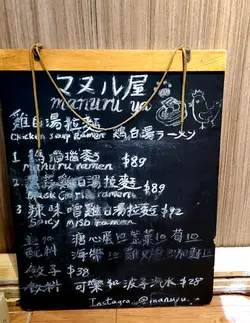 マヌル屋
manuru ya
雞白湯拉麵
Chicken Soup Ramen 鶏白湯ラーメン
1 $89
manuru ramen
2 雞白湯拉麵 $89
Black Garlic ramen
3 辣味噌雞白湯拉麵 $92
Spicy miso ramen
配料 溏心蛋10 紫菜10 筍10
海帶10
餃子 $38
飲料 可樂 波子汽水 $28
Instagram@manuru